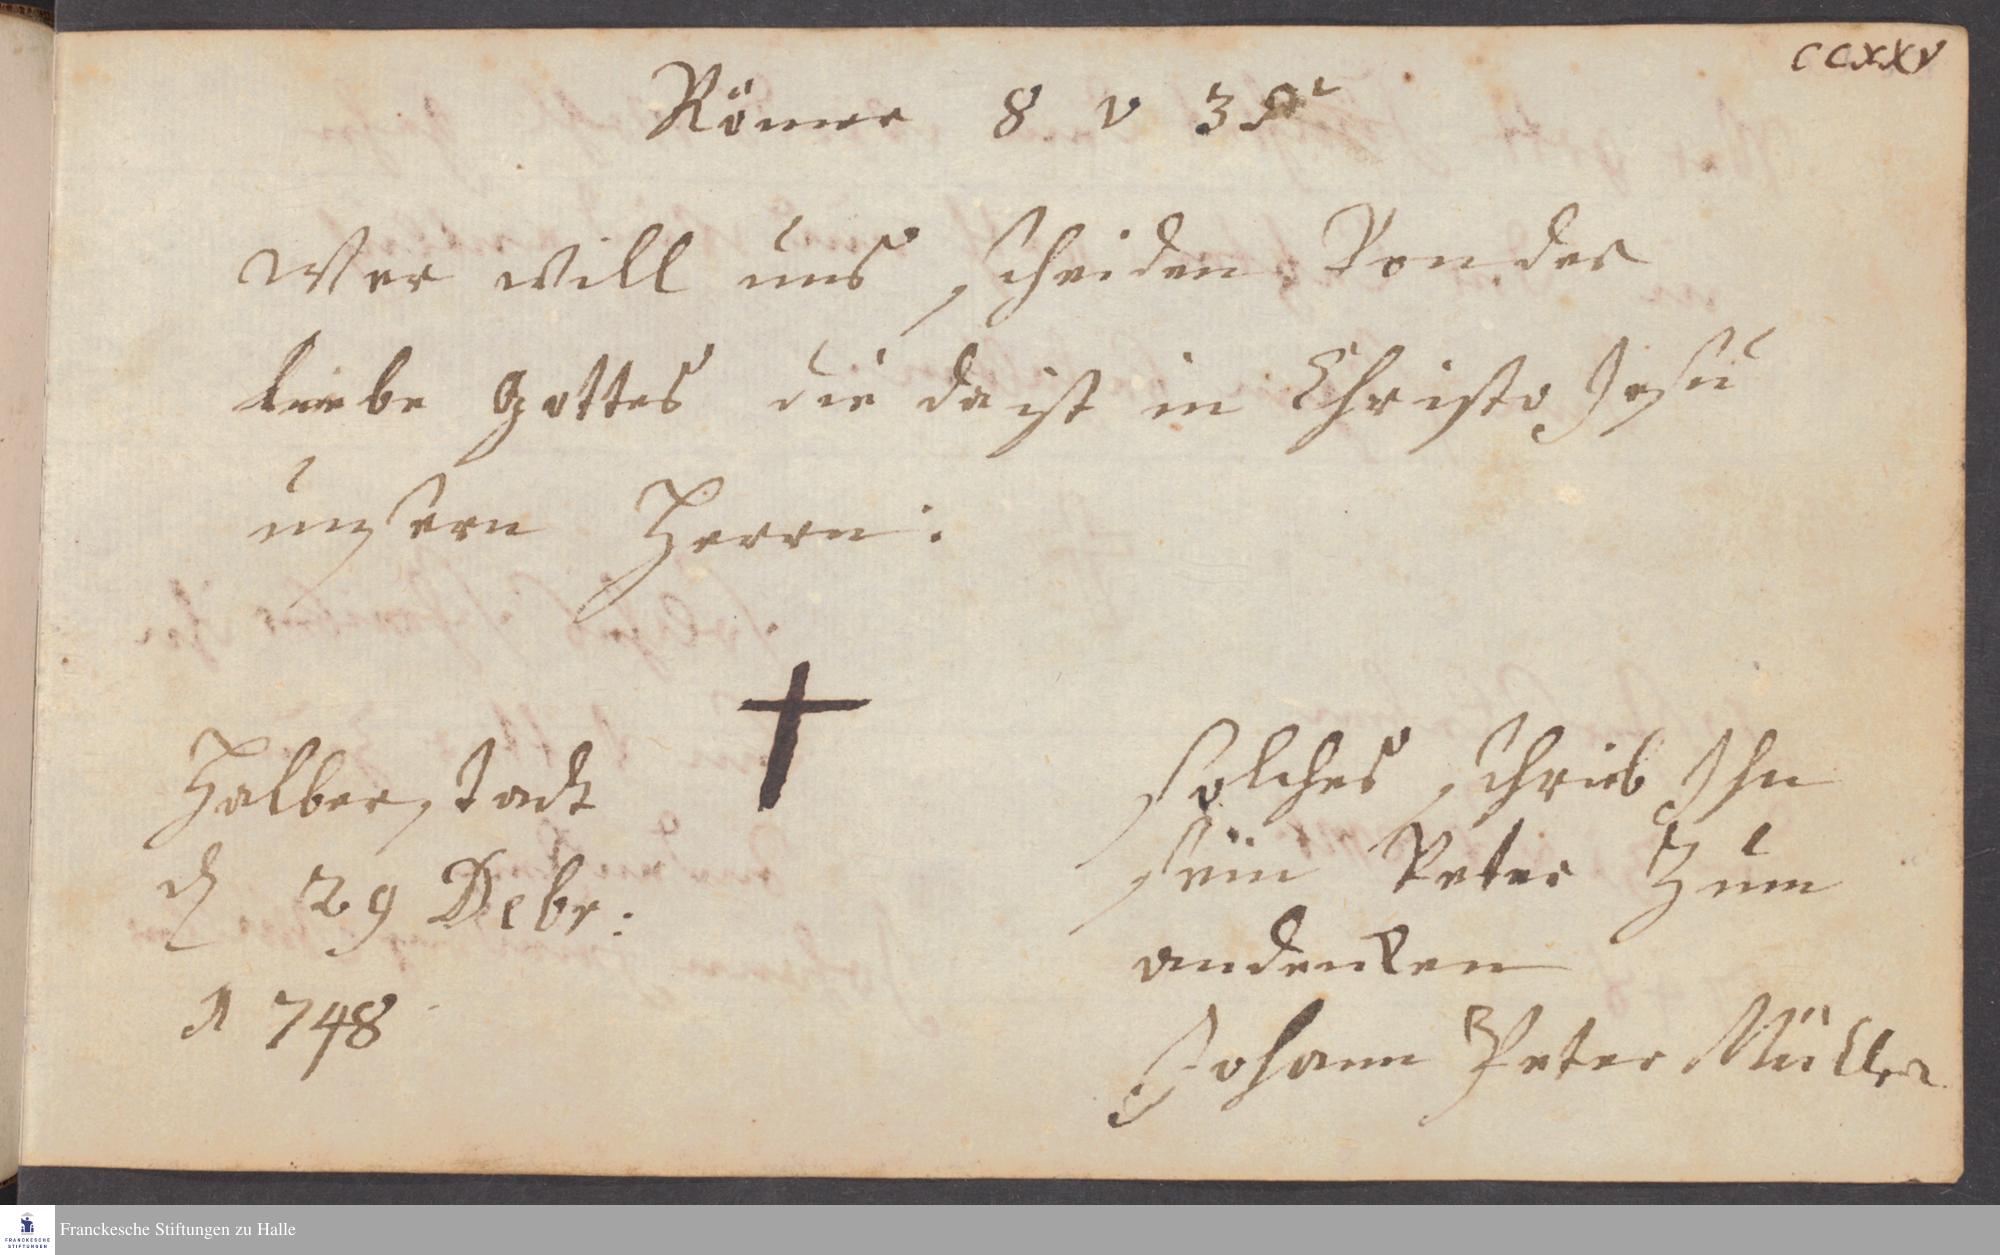 CCXXV
Römer 8 v 39
Wer will uns scheiden Von der
Liebe Gottes die da ist in Christo Jesu
unsern Herrn:
Halberstadt
d 29 Debr:
1748
solches schrieb Ihn
sein Peter Zum
andencken
Johann Peter Müller
FRANCKESCHE
STIFTUNGEN
Franckesche Stiftungen zu Halle